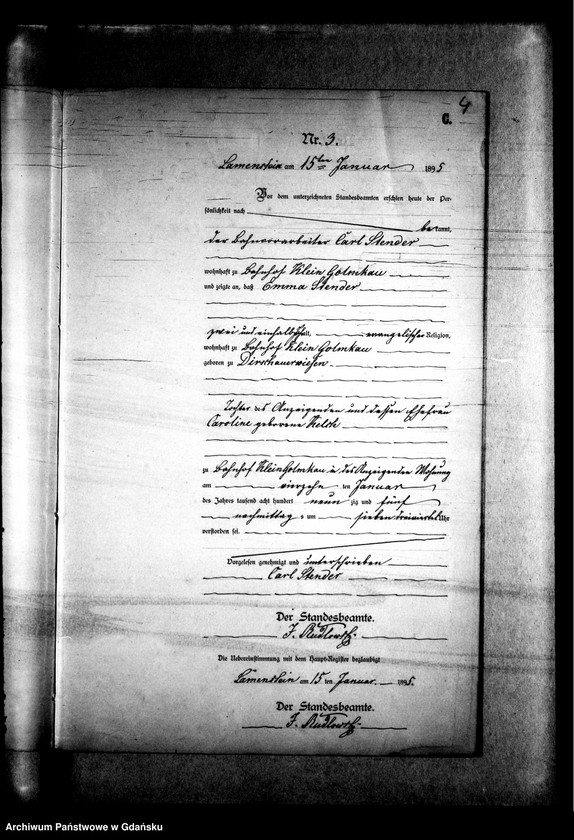 4
C.
Nr. 3.
Lamenstein am 15ten Januar 1895
Vor dem unterzeichneten Standesbeamten erschien heute der Per-
sönlichkeit nach
be kannt,
der Bahnvorarbeiter Carl Stender
wohnhaft zu Bahnhof Klein Golmkau
und zeigte an, daß Emma Stender
zwei und einhalb Jahr alt, evangelischer Religion,
wohnhaft zu Bahnhof Klein Golmkau
geboren zu Dirschauerwiesen
Tochter des Anzeigenden und dessen Ehefrau
Caroline geborene
zu Bahnhof Klein Golmkau in des Anzeigenden Wohnung
am vierzehn ten Januar
des Jahres tausend acht hundert neun zig und fünf
nachmittag s um sieben dreiviertel Uhr
verstorben sei.
Vorgelesen, genehmigt und unterschrieben
Carl Stender
Der Standesbeamte.
F.
Die Uebereinstimmung mit dem Haupt-Register beglaubigt
Lamenstein am 15 ten Januar 1895.
Der Standesbeamte.
F.
Archiwum Państwowe w Gdańsku